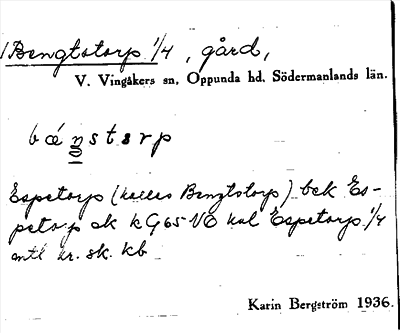 Bengtstorp 1/4, gård,
V. Vingåkers sn, Oppunda hd, Södermanlands län.
bǽŋstɘrp
Espetorp (kallas Bengtstorp) bek Es-
petorp ek kG65 VÖ kal Espetorp 1/4
mtl kr. sk. kb
Karin Bergström 1936.